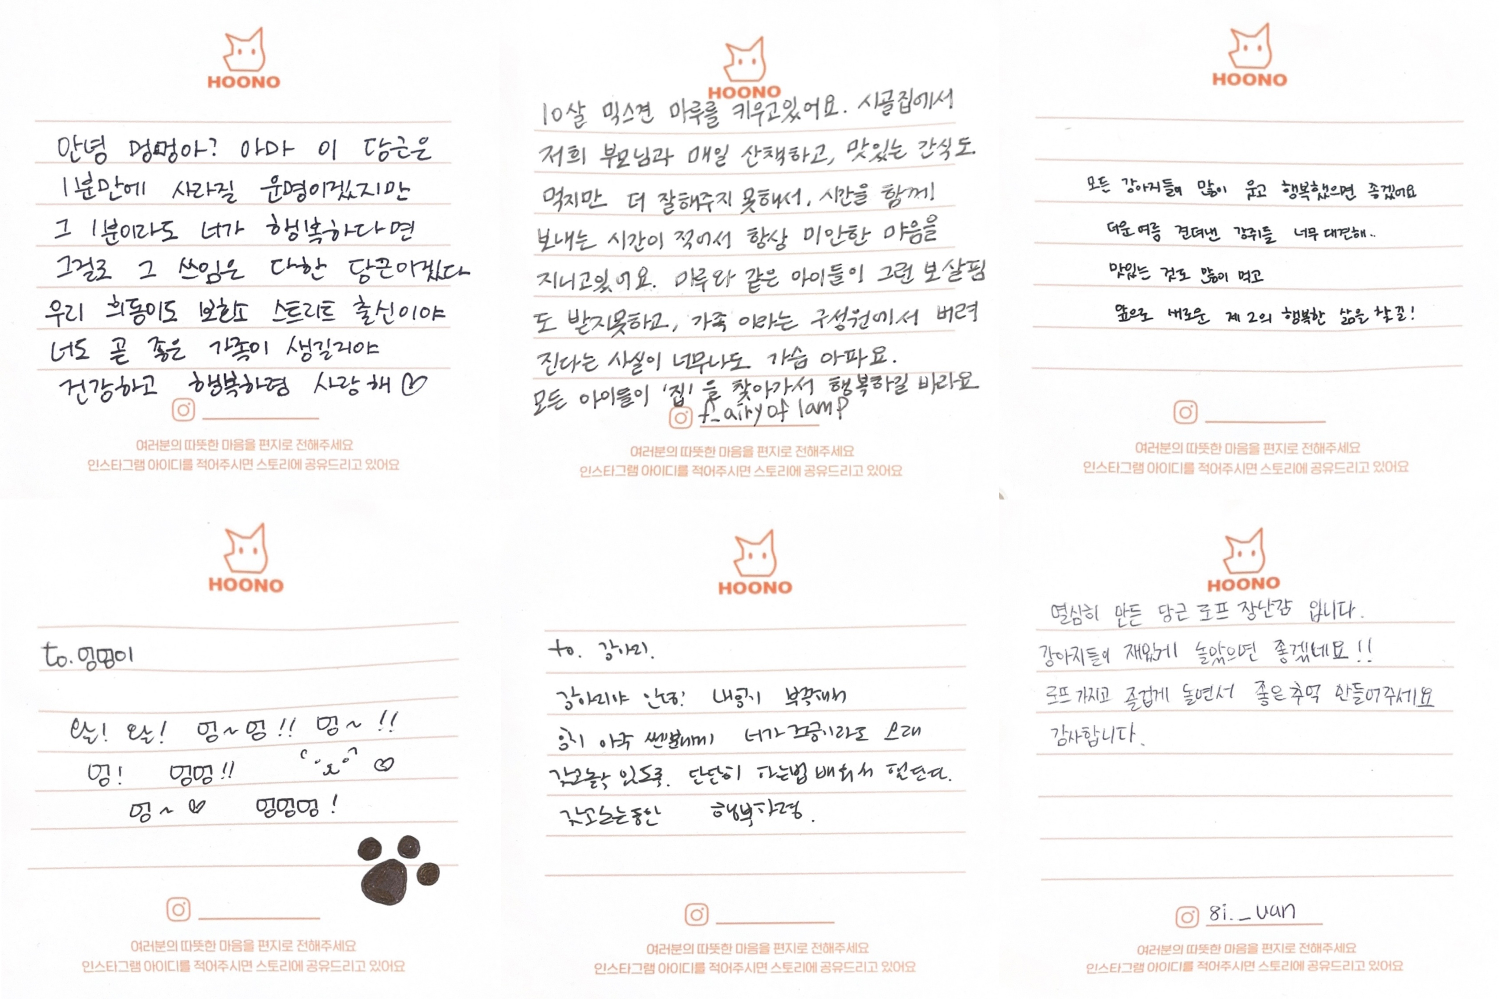 HOONO
안녕 멍멍아? 아마 이 당근은
1분만에 사라질 운명이겠지만
그 1분이라도 너가 행복하다면
그걸로 그 쓰임은 다한 당근이겠다
우리 희동이도 보호소 스트리트 출신이야
너도 곧 좋은 가족이 생길거야
건강하고 행복하렴 사랑해♡
여러분의 따뜻한 마음을 편지로 전해주세요
인스타그램 아이디를 적어주시면 스토리에 공유드리고 있어요
HOONO
10살 믹스견 마루를 키우고있어요. 시골집에서
저희 부모님과 매일 산책하고, 맛있는 간식도
먹지만 더 잘해주지 못해서, 시간을 함께
보내는 시간이 적어서 항상 미안한 마음을
지니고있어요. 마루와 같은 아이들이 그런 보살핌
도 받지못하고, 가족 이라는 구성원에서 버려
진다는 사실이 너무나도 가슴 아파요.
모든 아이들이 '집'을 찾아가서 행복하길 바라요
f_airyof lamp
여러분의 따뜻한 마음을 편지로 전해주세요
인스타그램 아이디를 적어주시면 스토리에 공유드리고 있어요
HOONO
모든 강아지들이 많이 웃고 행복했으면 좋겠어요
더운 여름 견뎌낸 강쥐들 너무 대견해..
맛있는 것도 많이 먹고
앞으로 새로운 제2의 행복한 삶을 살길!
여러분의 따뜻한 마음을 편지로 전해주세요
인스타그램 아이디를 적어주시면 스토리에 공유드리고 있어요
HOONO
to. 멍멍이
왈! 왈! 멍~멍!! 멍~!!
멍! 멍멍!! ♡
멍~♡ 멍멍멍!
여러분의 따뜻한 마음을 편지로 전해주세요
인스타그램 아이디를 적어주시면 스토리에 공유드리고 있어요
HOONO
to. 강아지.
강아지야 안녕? 내향지 부끄래서
아주 너가 조금이라도 오래
갖고놀 수 있도록. 단단히 하는법 배워서 만든다.
갖고노는동안 행복하렴.
여러분의 따뜻한 마음을 편지로 전해주세요
인스타그램 아이디를 적어주시면 스토리에 공유드리고 있어요
HOONO
열심히 만든 당근 로프 장난감 입니다.
강아지들이 재밌게 놀았으면 좋겠네요!!
로프 가지고 즐겁게 놀면서 좋은 추억 만들어주세요
감사합니다.
8i._van
여러분의 따뜻한 마음을 편지로 전해주세요
인스타그램 아이디를 적어주시면 스토리에 공유드리고 있어요